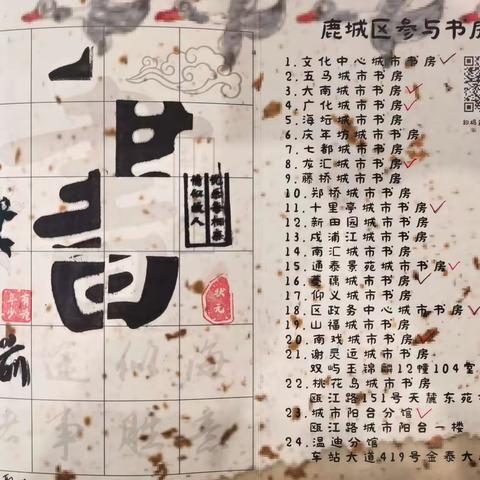 鹿城区参与书房
1.文化中心城市书房
2.五马城市书房
3.大南城市书房
4.广化城市书房
5.海坛城市书房
6.庆年坊城市书房
7.七都城市书房
8.龙汇城市书房
9.藤桥城市书房
10.郑桥城市书房
11.十里亭城市书房
12.新田园城市书房
13.戍浦江城市书房
14.南汇城市书房
15.通泰景苑城市书房
16.藕城市书房
17.仰义城市书房
18.区政务中心城市书房
19.山福城市书房
20.南戏城市书房
21.谢灵运城市书房
双屿王锦麟12幢104室
22.桃花岛城市书房
瓯江路151号天麓东苑
23.城市阳台分馆
瓯江路城市阳台一楼
24.温迪分馆
车站大道419号金泰大
状元
有魂
年少
书
前
事